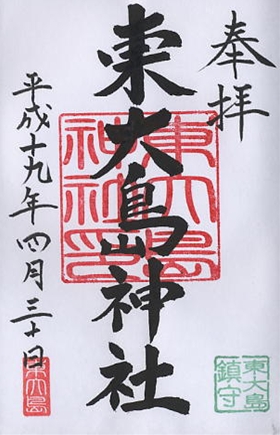 奉拝
東大島神社
平成十九年四月三十日
東大島神社印
東大島鎮守
東大島